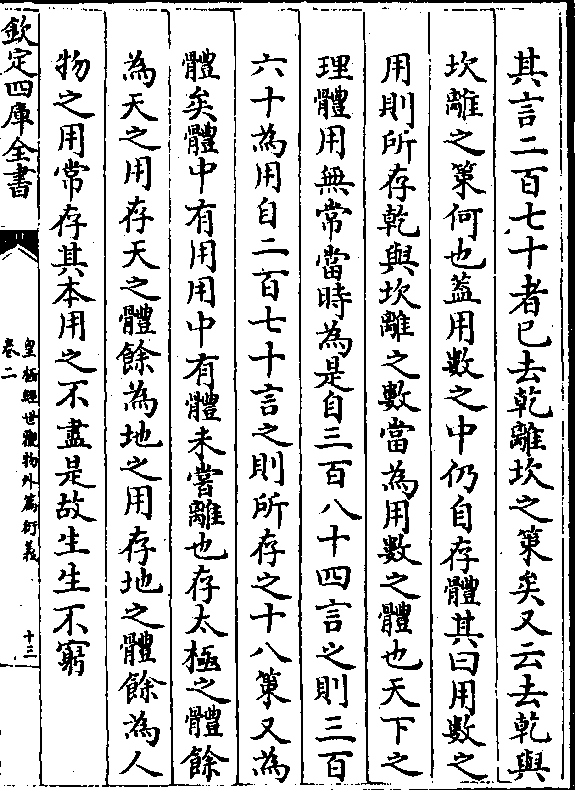 其言二百七十者已去乾離坎之策矣又云去乾與
坎離之策何也葢用數之中仍自存體其曰用數之
用則所存乾與坎離之數當為用數之體也天下之
理體用無常當時為是自三百八十四言之則三百
六十為用自二百七十言之則所存之十八策又為
體矣體中有用用中有體未嘗離也存太極之體餘
為天之用存天之體餘為地之用存地之體餘為人
物之用常存其本用之不盡是故生生不窮
欽定四庫全書
皇極經世觀物外篇衍義
卷二
十三